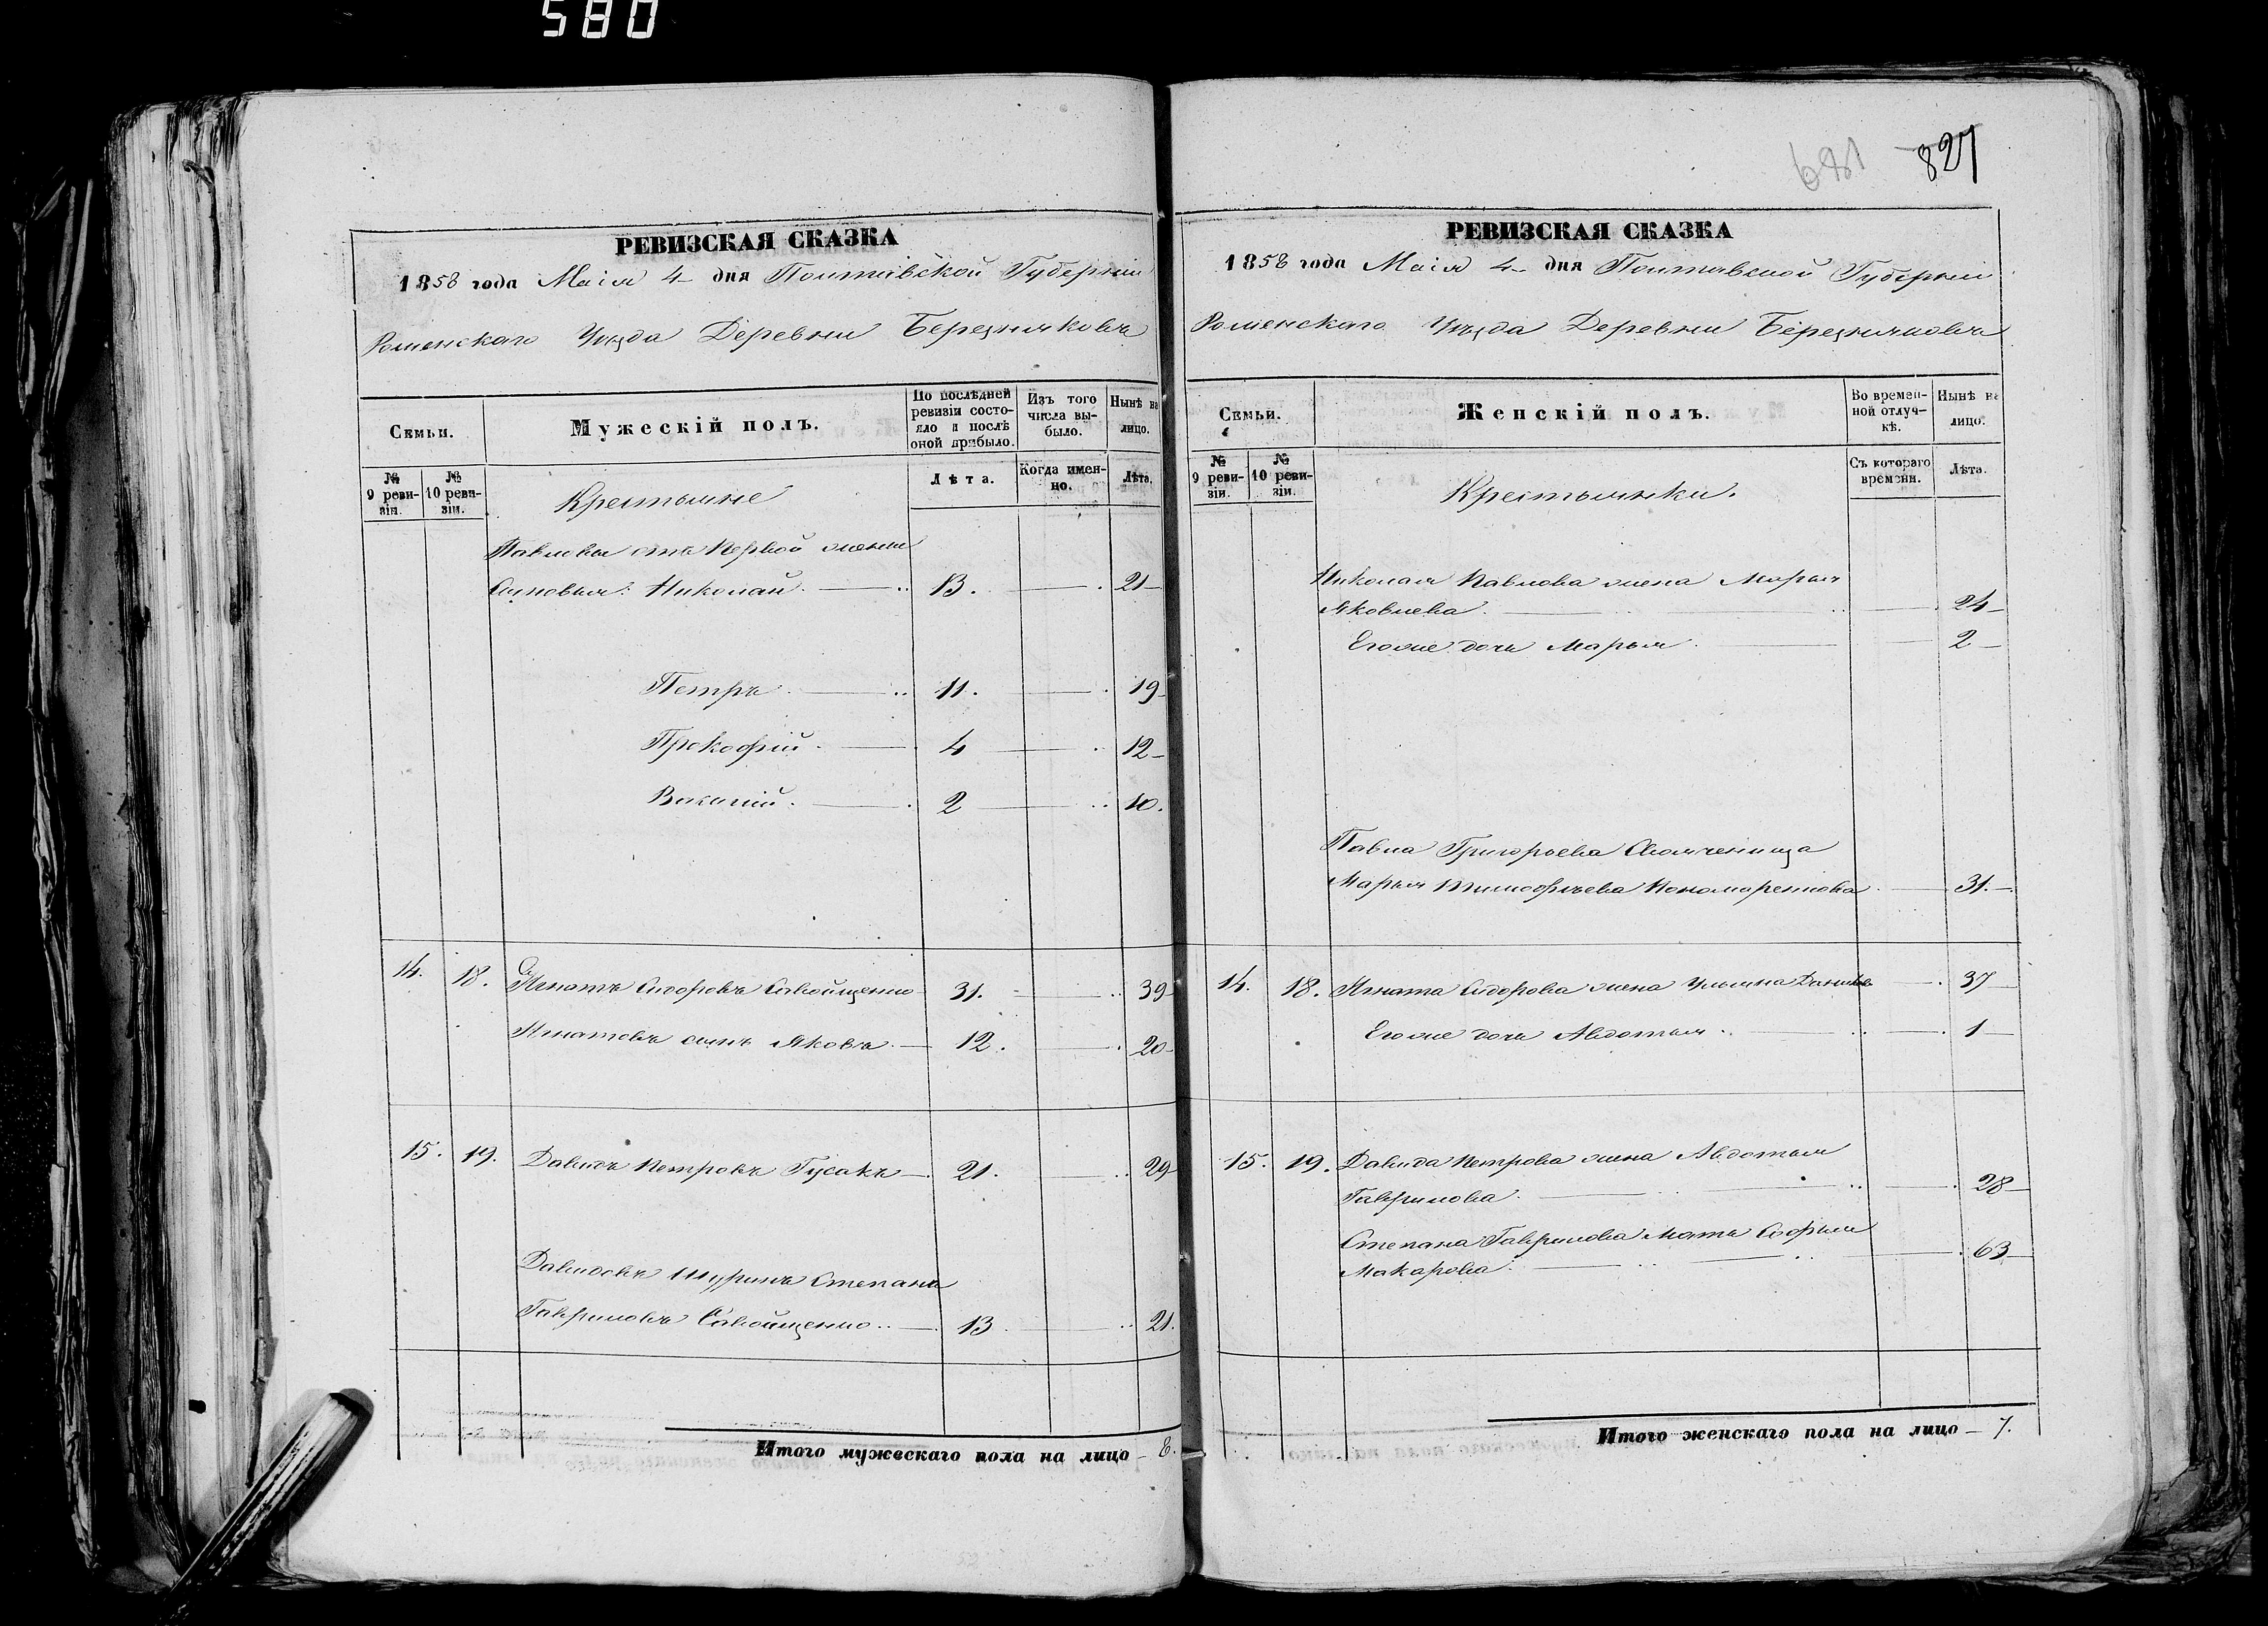 580
827
681
РЕВИЗСКАЯ СКАЗКА
1858 года Маія 4 дня Полтавской Губерніи
Роменскаго Уѣзда Деревни Березняковъ
Семьи.
Мужескій полъ.
По послѣдней ревизіи состояло и послѣ оной прибыло.
Изъ того числа выбыло.
Нынѣ на лицо.
№ 9 ревизіи.
№ 10 ревизіи.
Крестьяне
Лѣта.
Когда именно.
Лѣта.
Павловы отъ первой жены
Сыновья: Николай 13. 21
Петръ 11. 19
Прокофій 4 12
10.
2
14. 18. Игнатъ Сидоровъ 31. 39
Игнатовъ сынъ Яковъ 12. 20
15. 19. Давидъ Петровъ Гусакъ 21. 29
Давидовъ Шуринъ Степанъ
Гавриловъ 13 21.
Итого мужескаго пола на лицо 8.
РЕВИЗСКАЯ СКАЗКА
1858 года Маія 4 дня Полтавской Губерніи
Роменскаго Уѣзда Деревни Березняковъ
Семьи.
Женскій полъ.
Во временной отлучкѣ.
Нынѣ на лицо.
№ 9 ревизіи.
№ 10 ревизіи.
Крестьянки.
Съ котораго времени.
Лѣта.
Николая Павлова жена Марья
Яковлева 24
Егоже дочь Марья 2
Павла Григорьева
Марья Тимофѣева Пономаренкова 31.
14. 18. Игната Сидорова жена Ульяна 37
Егоже дочь Авдотья 1
15. 19. Давида Петрова жена Авдотья
Гаврилова 28
Степана Гаврилова мать Софья
Макарова 63
Итого женскаго пола на лицо 7.